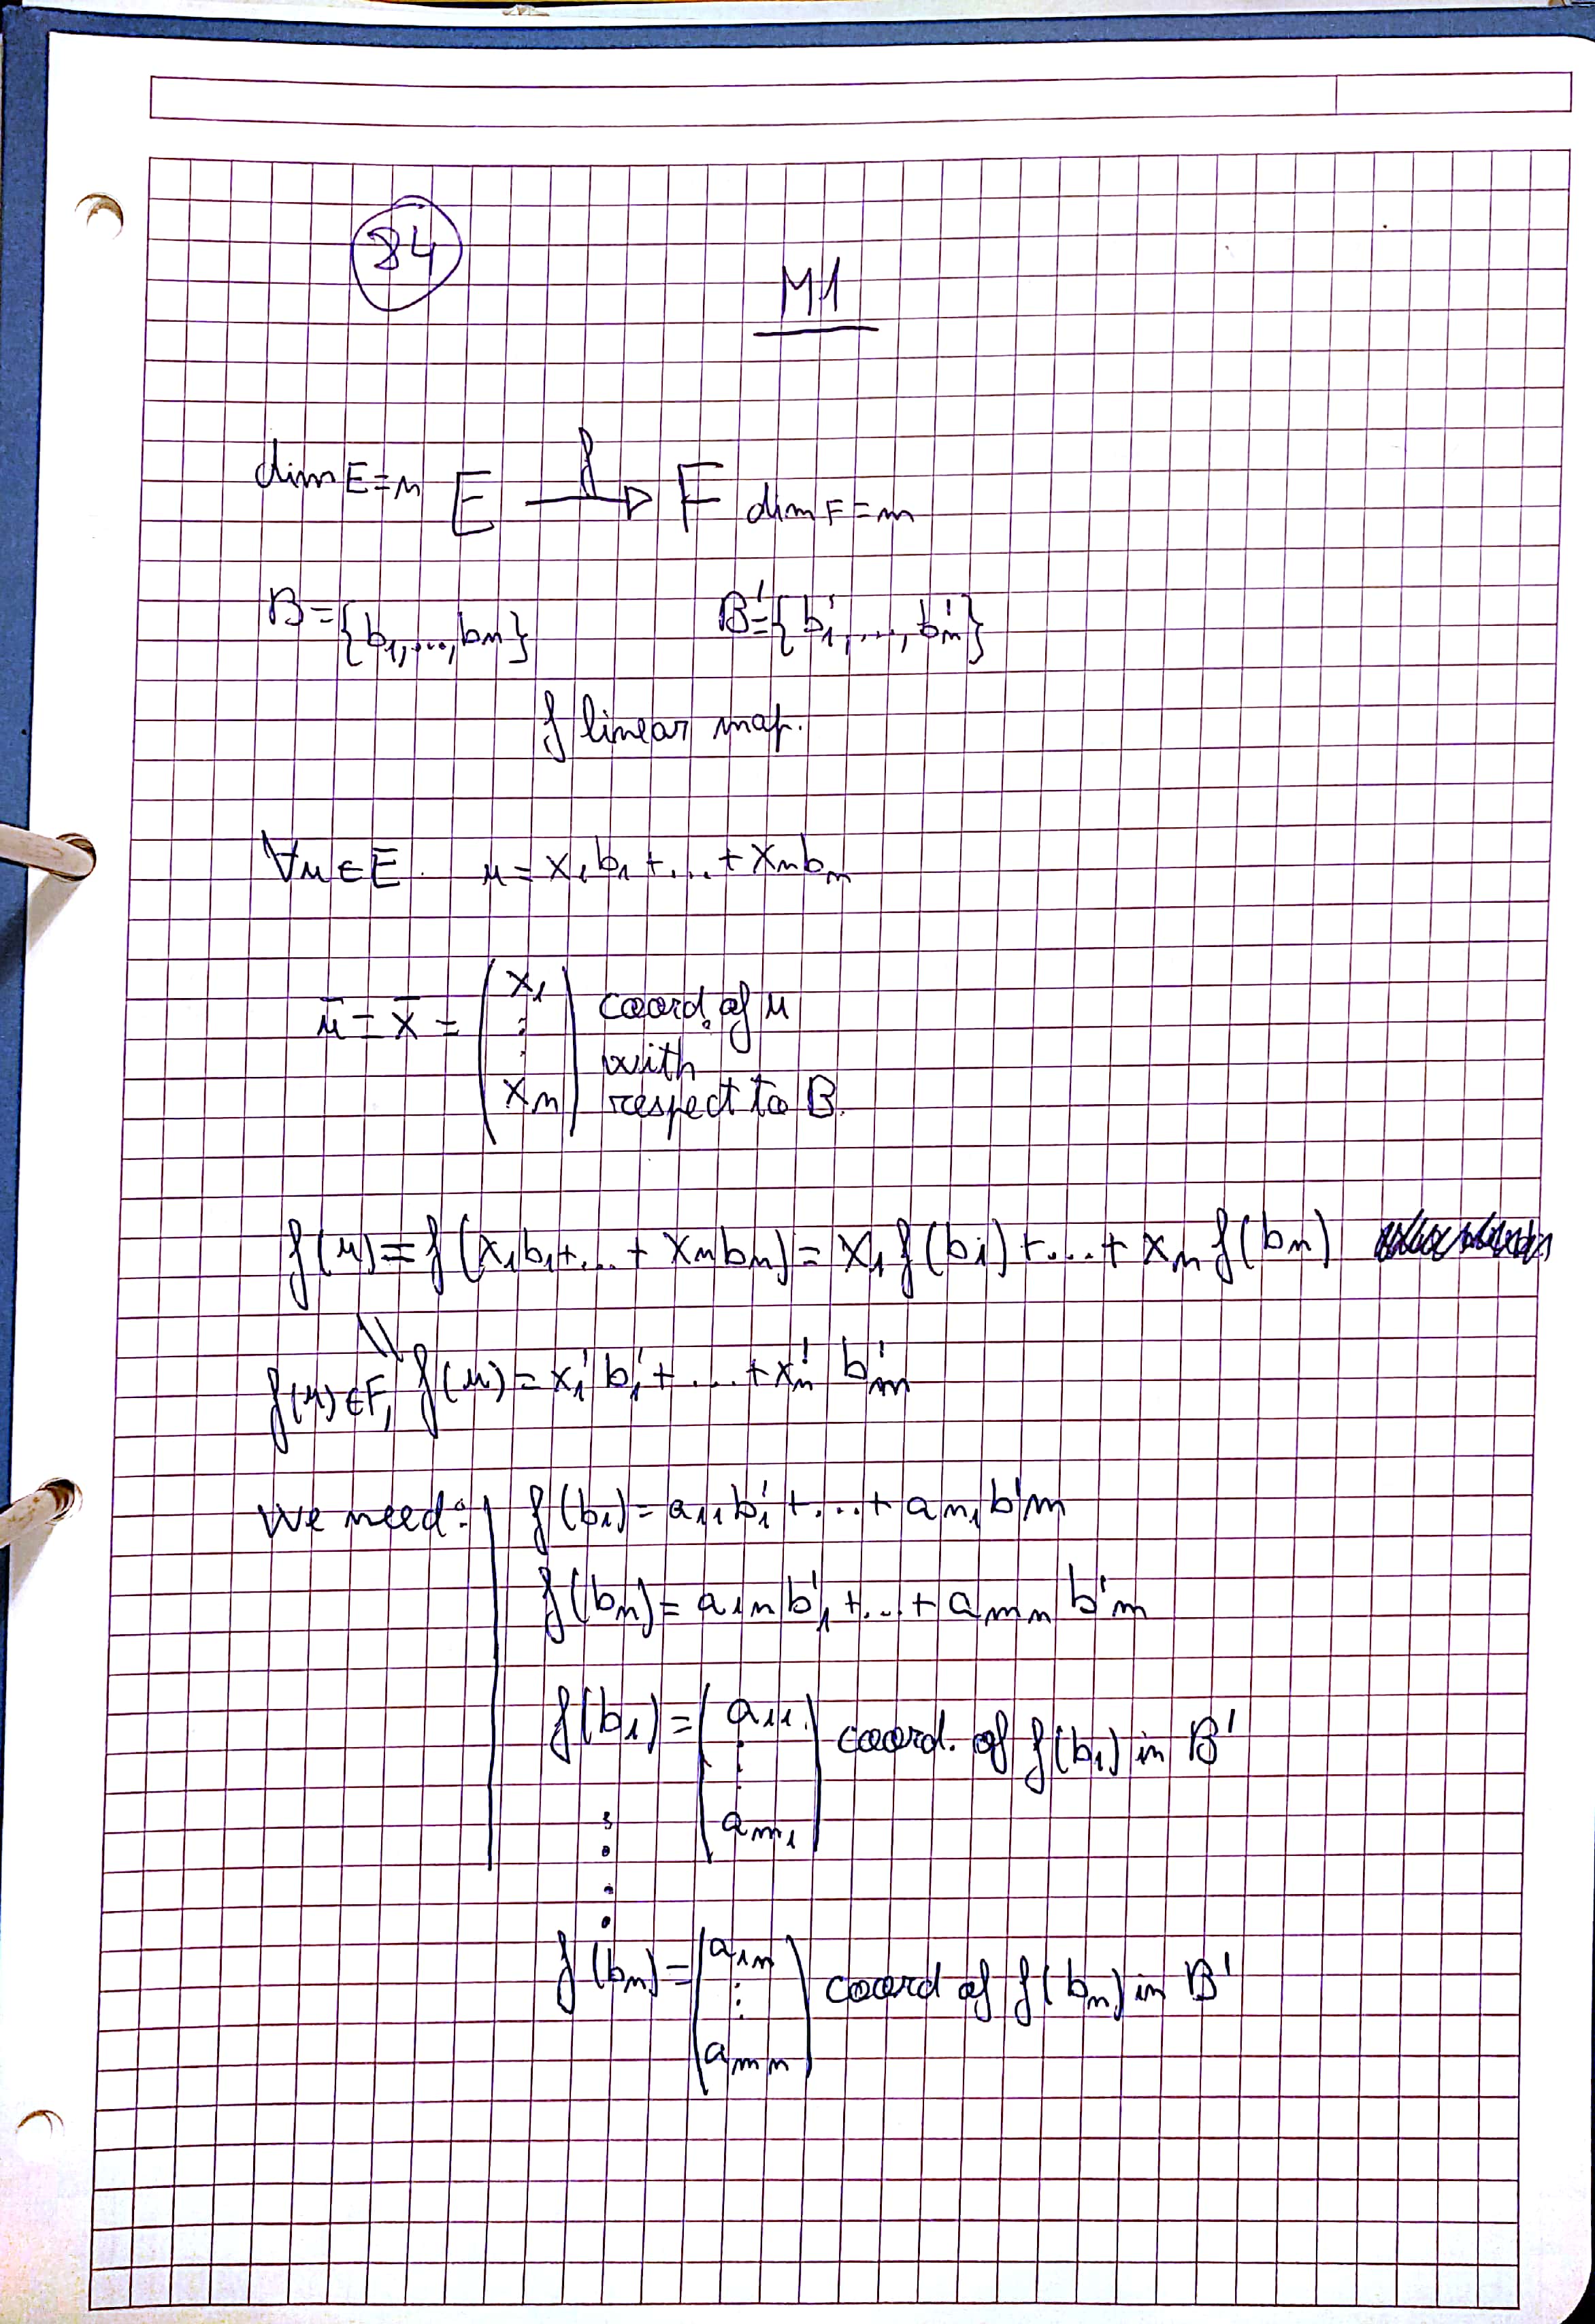 84
M1
dim E = n E f→ F dim F = m
B = {b₁, ..., bₙ} B' = {b'₁, ..., b'ₘ}
f linear map.
∀u ∈ E u = x₁b₁ + ... + xₙbₙ
ū = x̄ = (x₁ ⋮ xₙ) coord. of u
with
respect to B.
f(u) = f(x₁b₁ + ... + xₙbₙ) = x₁f(b₁) + ... + xₙf(bₙ)
\\
f(u) ∈ F, f(u) = x'₁b'₁ + ... + x'ₘ b'ₘ
We need: f(b₁) = a₁₁b'₁ + ... + aₘ₁b'ₘ
f(bₙ) = a₁ₙb'₁ + ... + aₘₙ b'ₘ
f(b₁) = (a₁₁ ⋮ aₘ₁) coord. of f(b₁) in B'
⋮
f(bₙ) = (a₁ₙ ⋮ aₘₙ) coord of f(bₙ) in B'